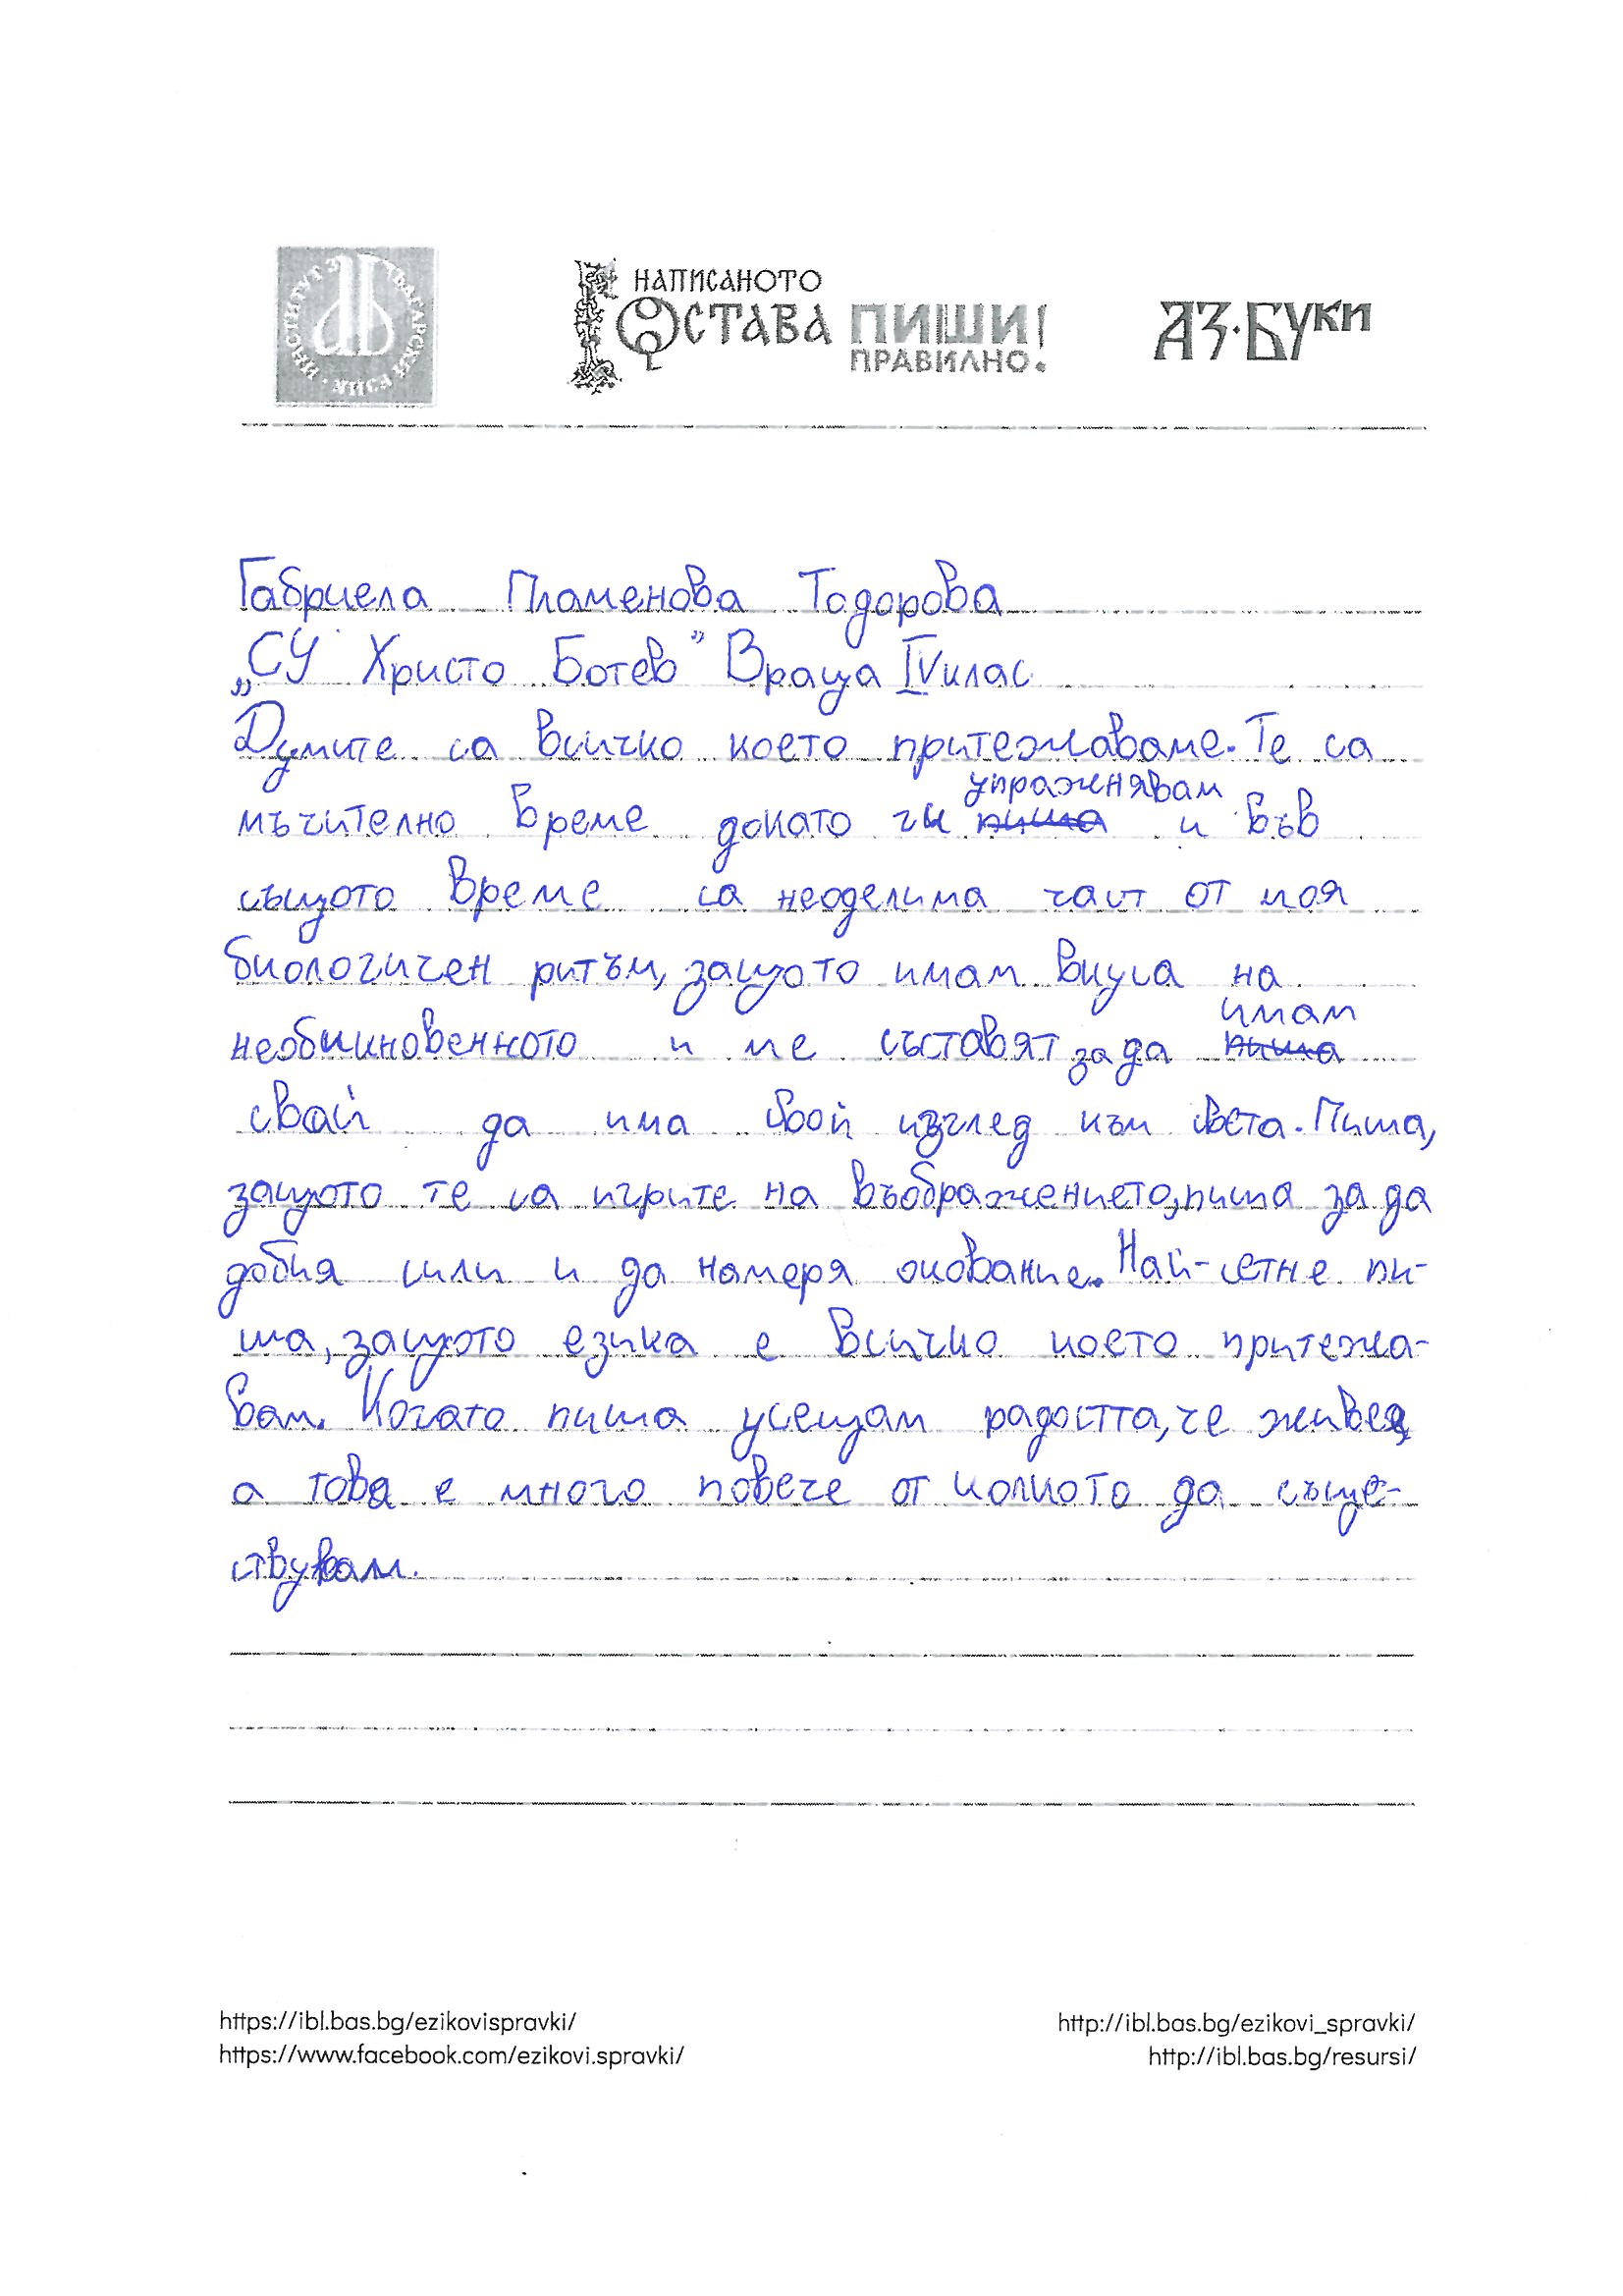 ИНСТИТУТ ЗА БЪЛГАРСКИ ЕЗИК
НАПИСАНОТО
ОСТАВА ПИШИ!
ПРАВИЛНО.
АЗ·БУКИ
Габриела Пламенова Тодорова
„СУ Христо Ботев" Враца IV клас
Думите са всичко което притежаваме. Те са
упражнявам
мъчително време докато ги пиша и във
същото време са неоделима част от моя
биологичен ритъм, защото имам вкуса на
имам
необикновенното и ме съставят за да пиша
свай да има свой изглед към света. Пиша,
защото те са игрите на въображението, пиша за да
добия сили и да намеря основание. Най-сетне пи-
ша, защото езика е всичко което притежа-
вам. Когато пиша усещам радостта, че живея,
а това е много повече от колкото да съще-
ствувам.
https://ibl.bas.bg/ezikovispravki/ http://ibl.bas.bg/ezikovi_spravki/
https://www.facebook.com/ezikovi.spravki/ http://ibl.bas.bg/resursi/